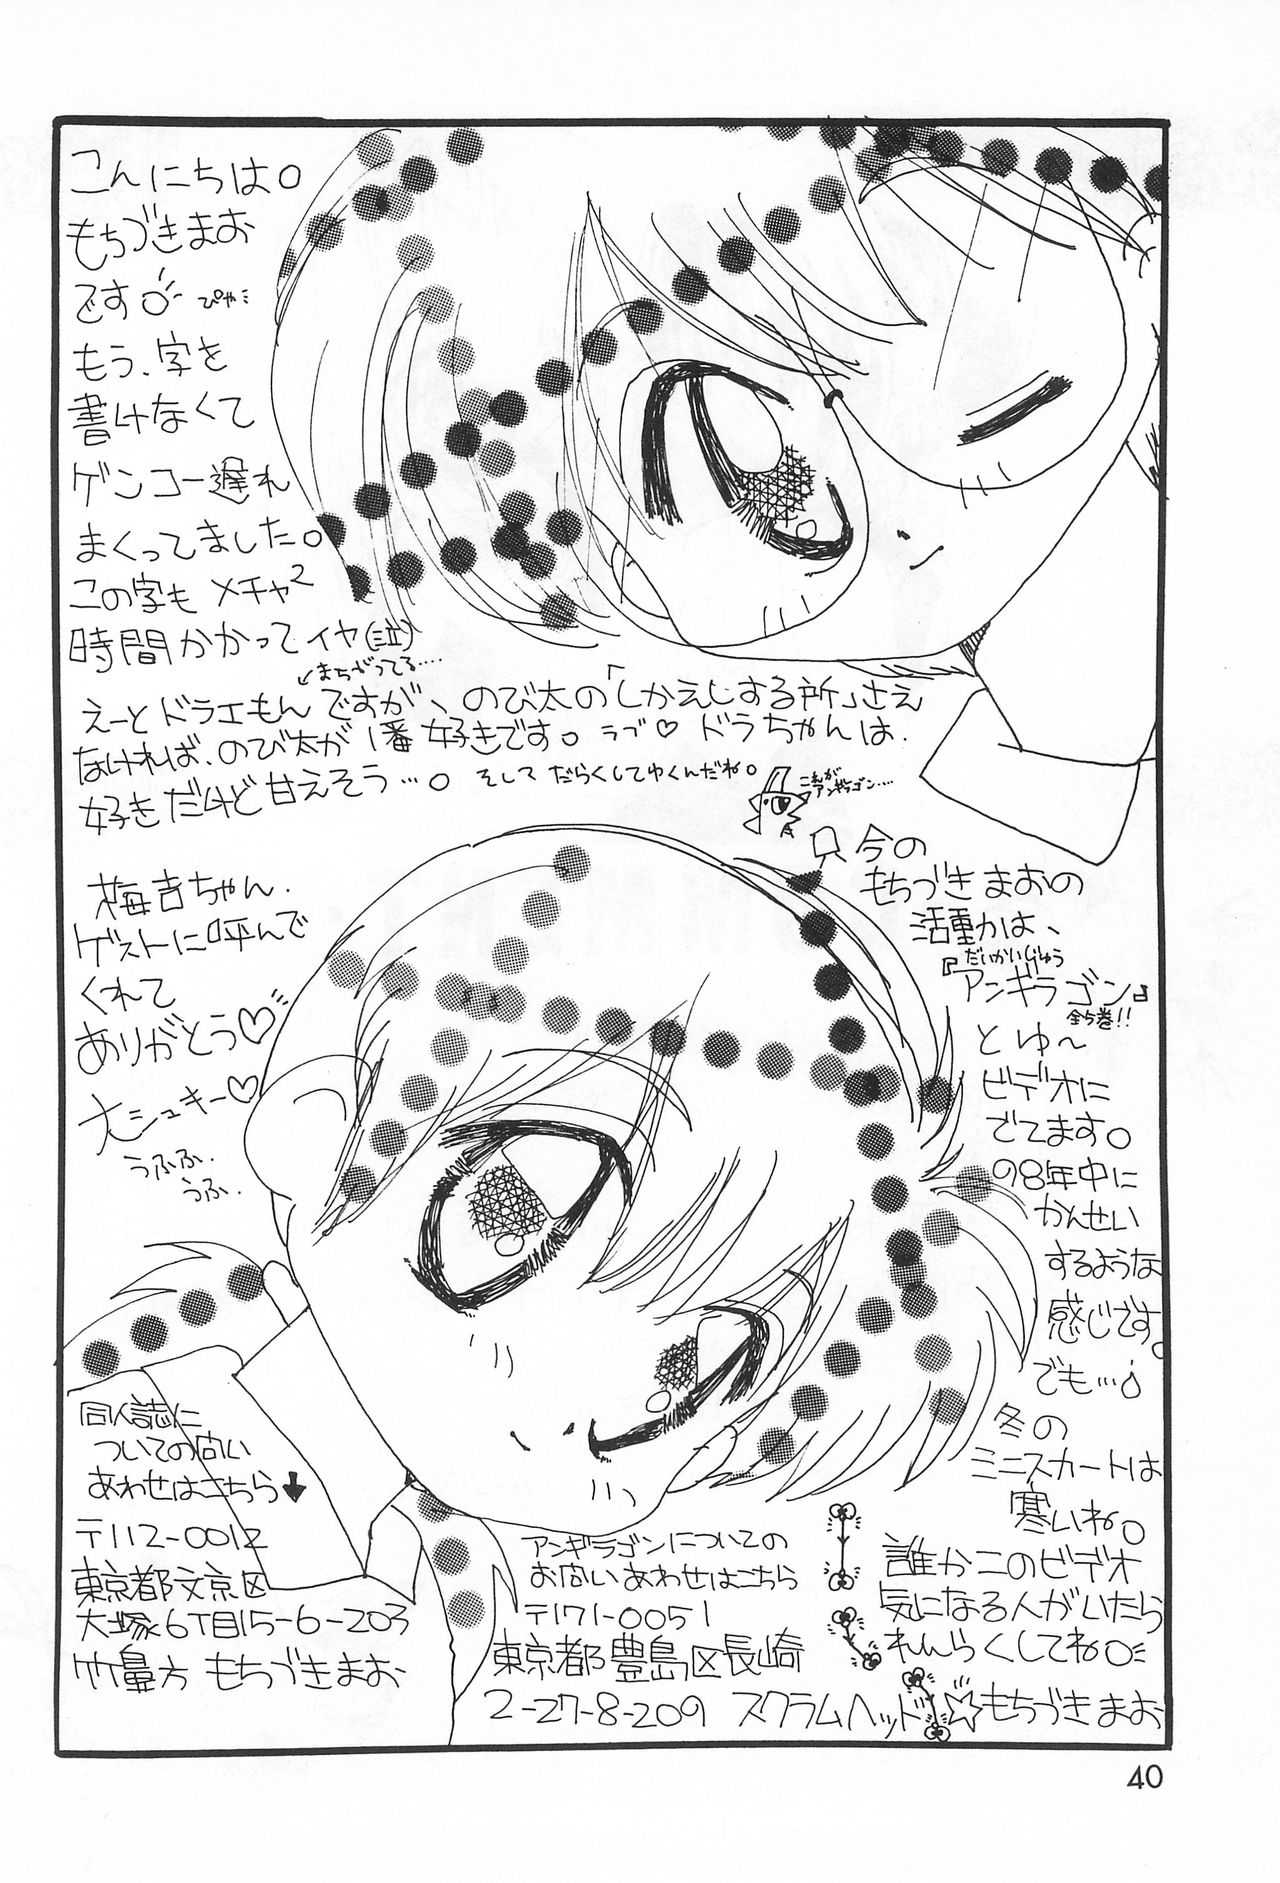 こんにちは。
もちづきまお
です。ぴやミ
もう、字を
書けなくて
ゲンコー遅れ
まくってました。
この字もメチャ²
時間かかってイヤ(泣)
↙まちがってる‥‥
えーとドラエもんですが、のび太の「しかえしする所」さえ
なければ、のび太が1番好きです。ラブ♡ドラちゃんは、
好きだけど甘えそう…。そしてだらくしてゆくんだね。
これが
アンギラゴン‥‥
梅吉ちゃん、
ゲストに呼んで
くれて
ありがとう♡
大シュキー♡
うふふ、
うふ、
今の
もちづきまおの
活動かは、
だいかいじゅう
『アンギラゴン』
全5巻!!
とゆ〜
ビデオに
でてます。
98年中に
かんせい
するような
感じです。
でも…
冬の
ミニスカートは
寒いね。
誰かこのビデオ
気になる人がいたら
れんらくしてね
☆もちづきまお
同人誌に
ついての問い
あわせはこちら↓
〒112-0012
東京都文京区
大塚6丁目15-6-203
方 もちづきまお
アンギラゴンについての
お問いあわせはこちら
〒171-0051
東京都豊島区長崎
2-27-8-209 スクラムヘッド
40